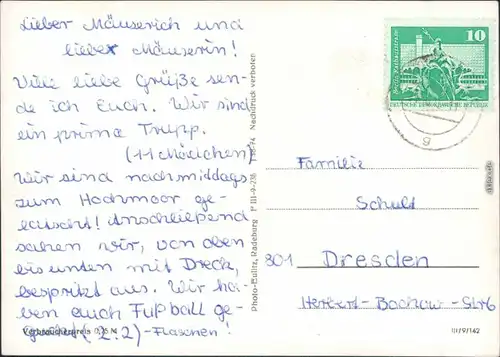 Lieber Mäuserich und
lieber Mäuserin!
Viele liebe Grüße sen-
de ich Euch. Wir sind
ein prima Trupp.
(11 Mädchen)
Wir sind nachmittags
zum Hochmoor ge-
latscht! Anschließend
sahen wir, von oben
bis unten mit Dreck,
bespritzt aus. Wir ha-
ben auch Fußball ge-
(2:2)-Flaschen!
Verbraucherpreis 0,25 M
Photo-Bulitz, Radeburg P III-9-236 Nachdruck verboten
10
DEUTSCHE DEMOKRATISCHE REPUBLIK
9
Familie
Schult
801 Dresden
Herbert-Bochow-Str6
III/9/142